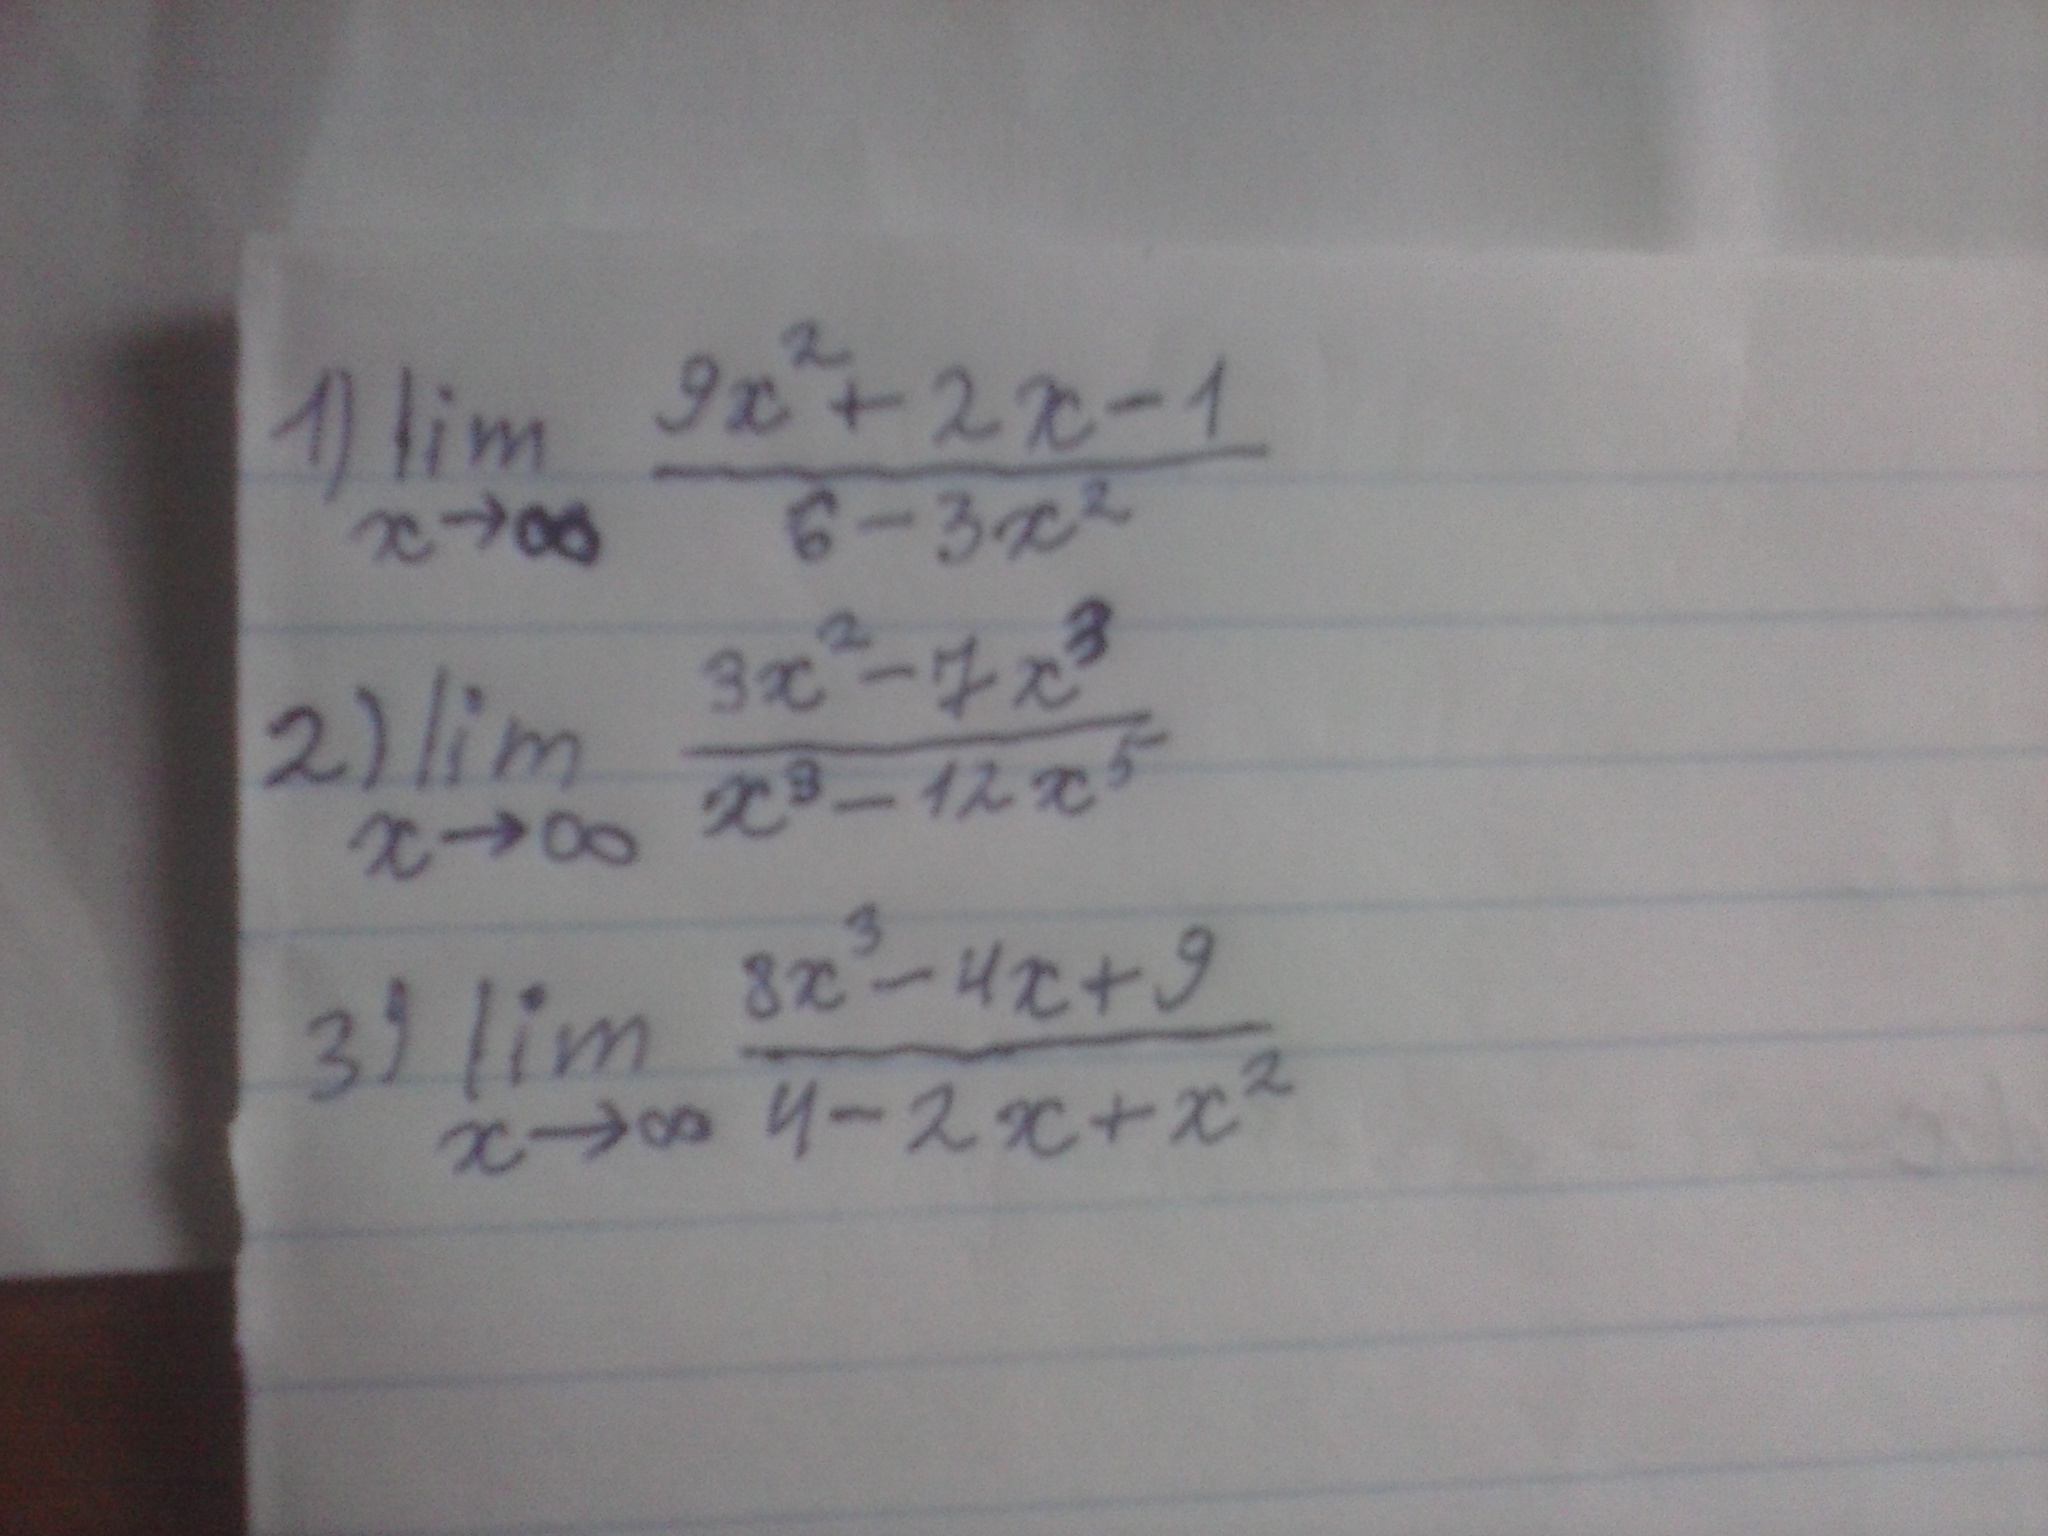 1) lim x→∞ (9x² + 2x - 1) / (6 - 3x²)
2) lim x→∞ (3x² - 7x³) / (x³ - 12x⁵)
3) lim x→∞ (8x³ - 4x + 9) / (4 - 2x + x²)